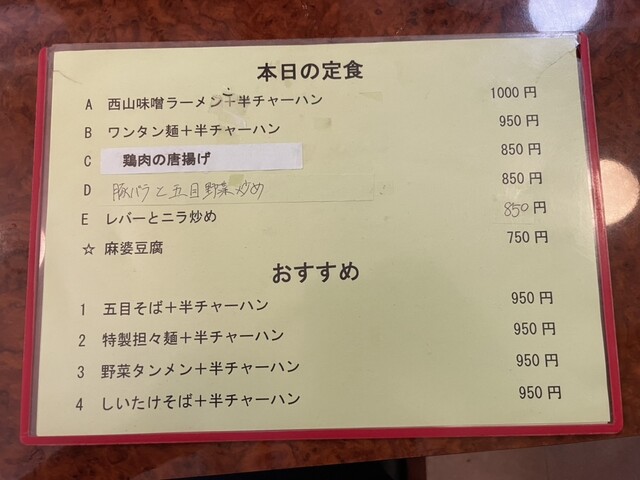 本日の定食
A 西山味噌ラーメン+半チャーハン 1000円
B ワンタン麺+半チャーハン 950円
C 鶏肉の唐揚げ 850円
D 豚バラと五目野菜炒め 850円
E レバーとニラ炒め 850円
☆ 麻婆豆腐 750円
おすすめ
1 五目そば+半チャーハン 950円
2 特製担々麺+半チャーハン 950円
3 野菜タンメン+半チャーハン 950円
4 しいたけそば+半チャーハン 950円